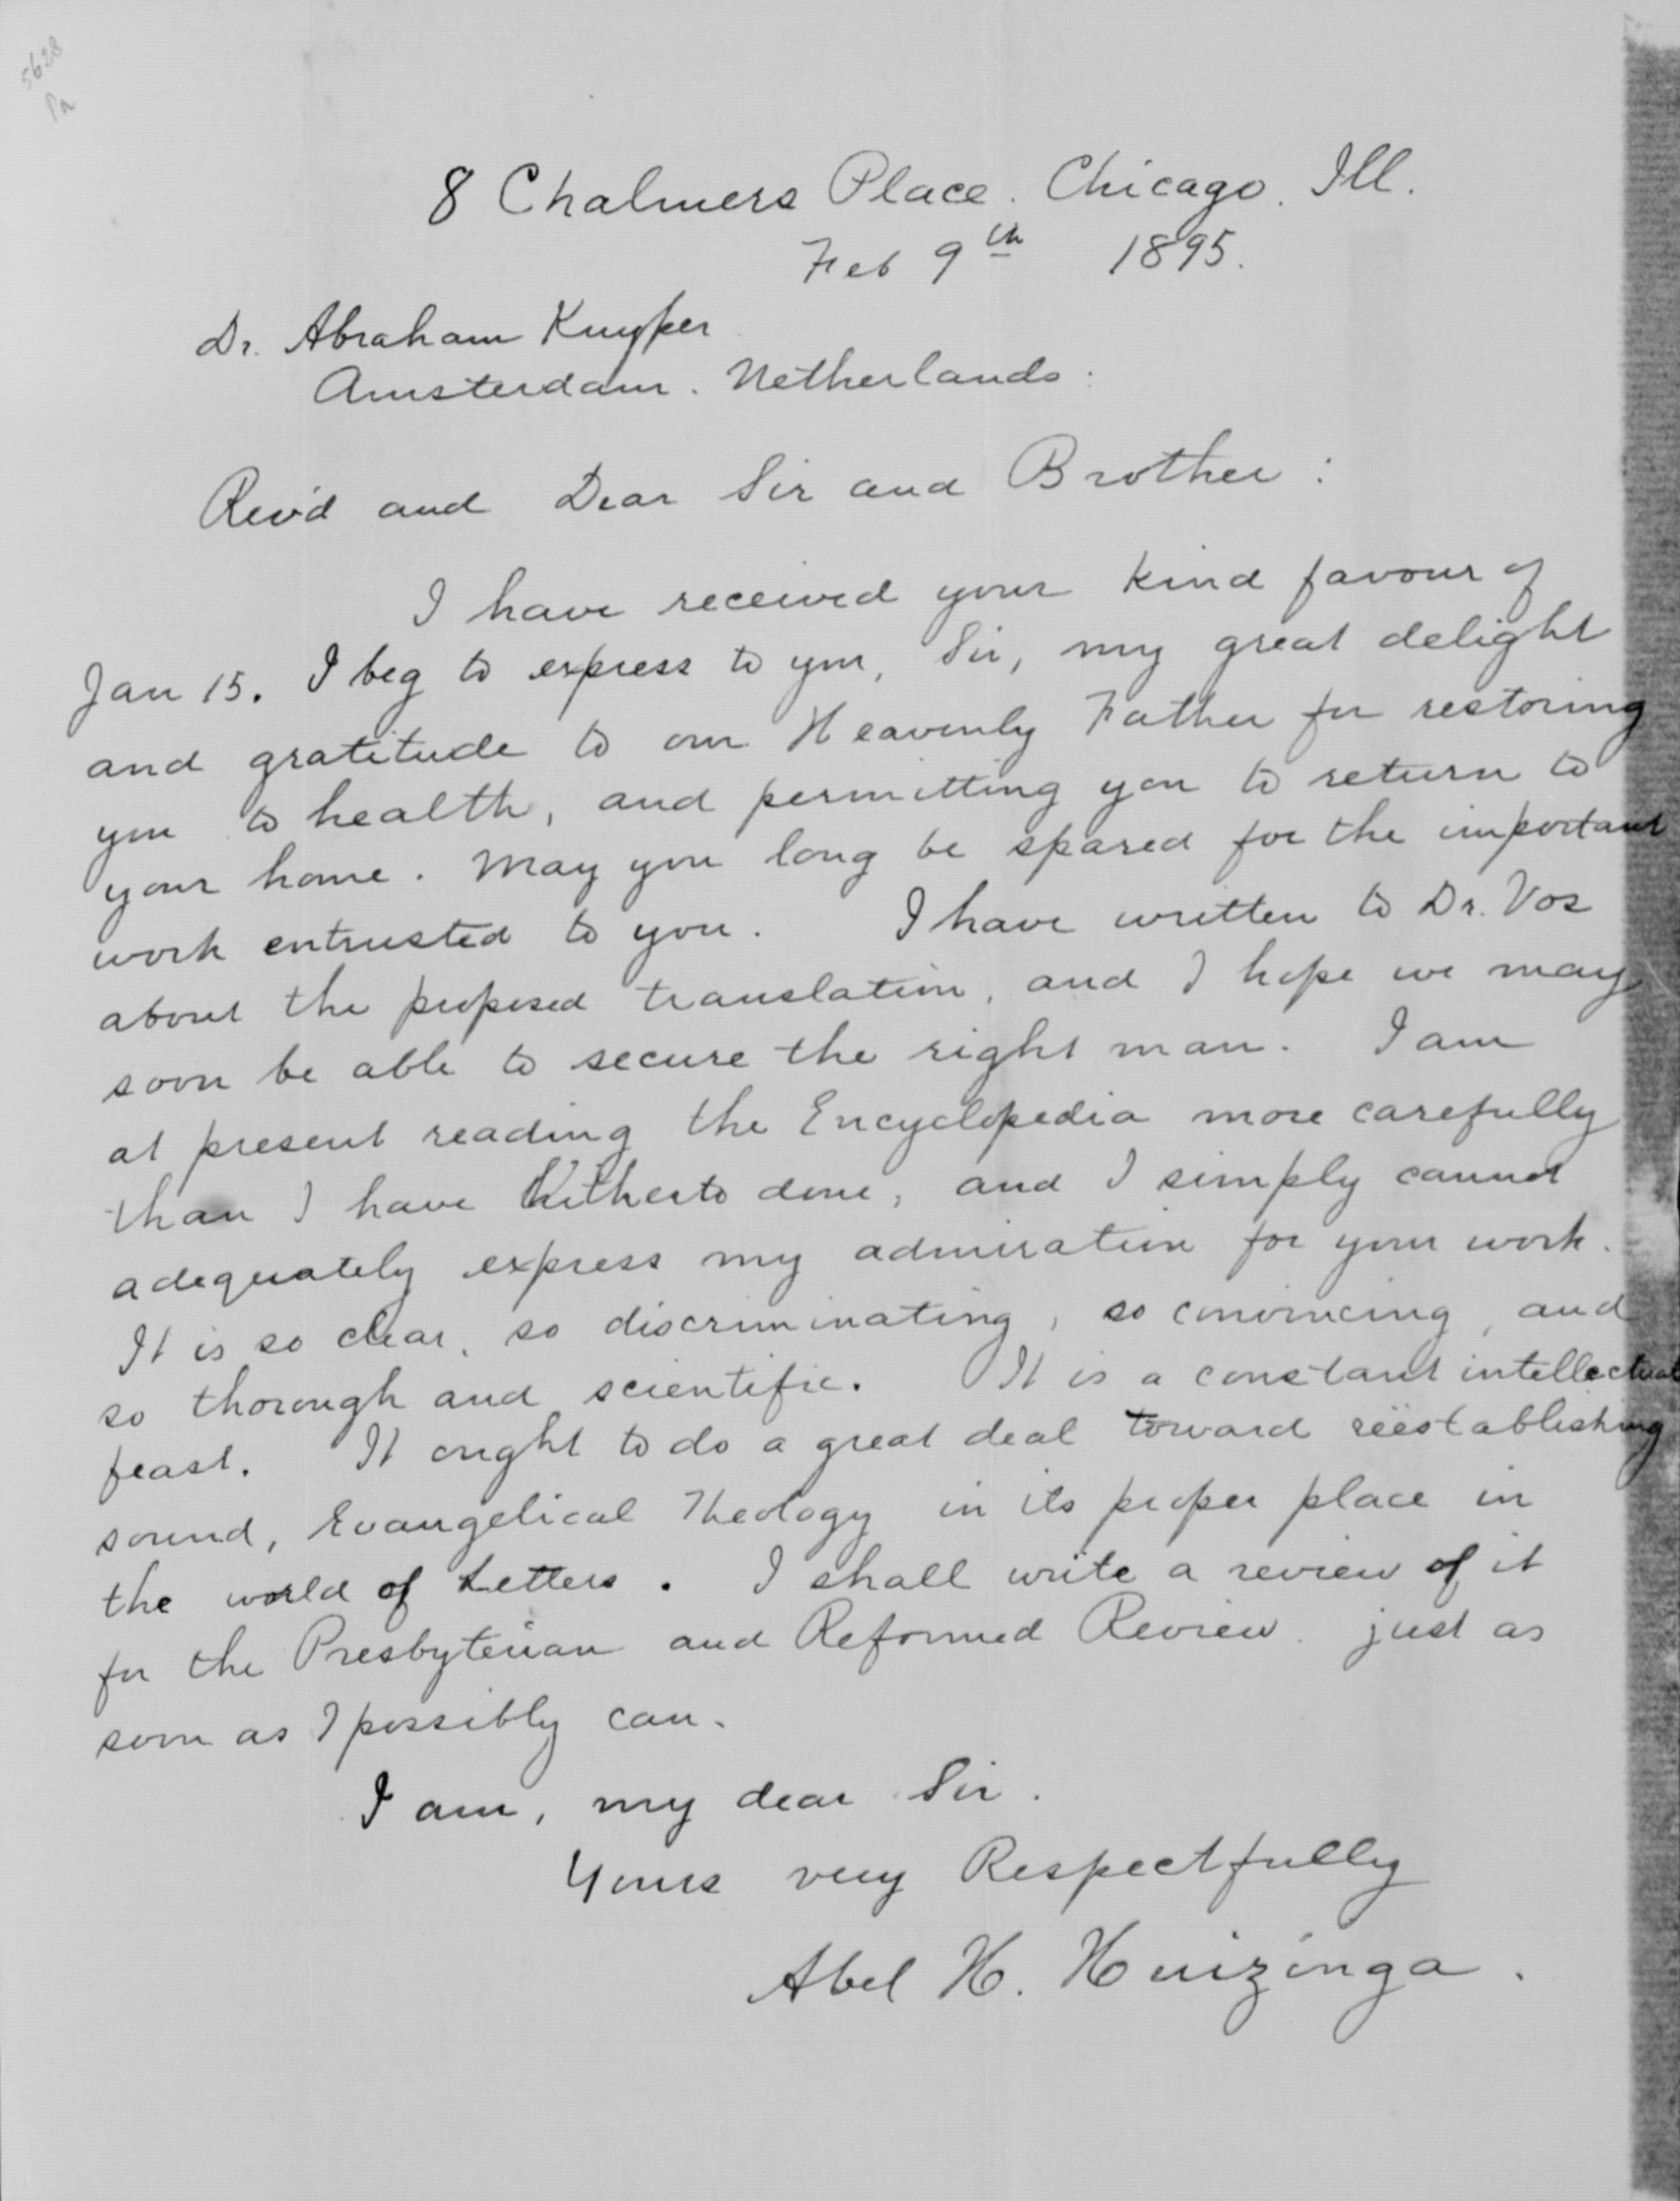 5628
Pa
8 Chalmers Place. Chicago. Ill.
Feb 9th 1895.
Dr. Abraham Kuyper
Amsterdam. Netherlands.
Rev'd and Dear Sir and Brother:
I have received your kind favour of
Jan 15. I beg to express to you, Sir, my great delight
and gratitude to our Heavenly Father for restoring
you to health, and permitting you to return to
your home. May you long be spared for the important
work entrusted to you. I have written to Dr. Vos
about the proposed translation, and I hope we may
soon be able to secure the right man. I am
at present reading the Encyclopedia more carefully
than I have hitherto done, and I simply cannot
adequately express my admiration for your work.
It is so clear, so discriminating, so convincing, and
so thorough and scientific. It is a constant intellectual
feast. It ought to do a great deal toward reëstablishing
sound, Evangelical Theology in its proper place in
the world of Letters. I shall write a review of it
for the Presbyterian and Reformed Review just as
soon as I possibly can.
I am, my dear Sir.
Yours very Respectfully
Abel H. Huizinga.